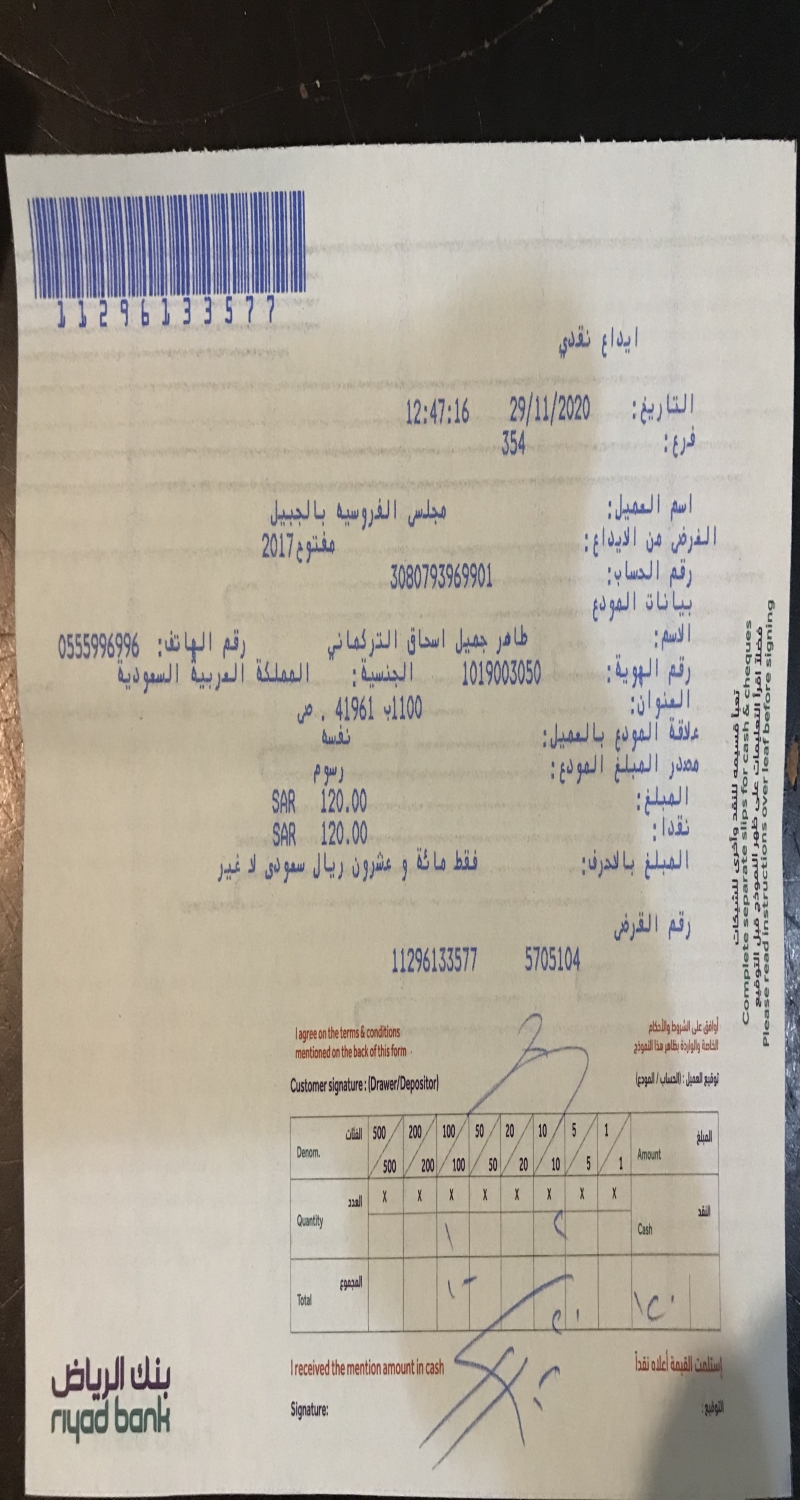 11296133577
ايداع نقدي
التاريخ: 29/11/2020 12:47:16
فرع: 354
اسم العميل: مجلس الفروسيه بالجبيل
الغرض من الايداع: مفتوح2017
رقم الحساب: 3080793969901
بيانات المودع
الاسم: طاهر جميل اسحاق التركماني رقم الهاتف: 0555996996
رقم الهوية: 1019003050 الجنسية: المملكة العربية السعودية
العنوان: 1100ب 41961 . ص
علاقة المودع بالعميل: نفسه
مصدر المبلغ المودع: رسوم
المبلغ: SAR 120.00
نقدا: SAR 120.00
المبلغ بالاحرف: فقط مائة و عشرون ريال سعودى لا غير
رقم القرض
5705104 11296133577
تعبأ قسيمه للنقد وأخرى للشيكات
Complete separate slips for cash & cheques
فضلاً إقرأ التعليمات على ظهر النموذج قبل التوقيع
Please read instructions over leaf before signing
أوافق على الشروط والأحكام
الخاصة والواردة بظاهر هذا النموذج
I agree on the terms & conditions
mentioned on the back of this form
توقيع العميل : (الحساب / المودع)
Customer signature : (Drawer/Depositor)
Denom. الفئات 500 200 100 50 20 10 5 1 المبلغ
500 200 100 50 20 10 5 1 Amount
Quantity العدد X X X X X X X X النقد Cash
١ ٢
Total المجموع ١٠٠ ٢٠ ١٢٠
I received the mention amount in cash إستلمت القيمة أعلاه نقداً
Signature: التوقيع :
بنك الرياض
riyad bank